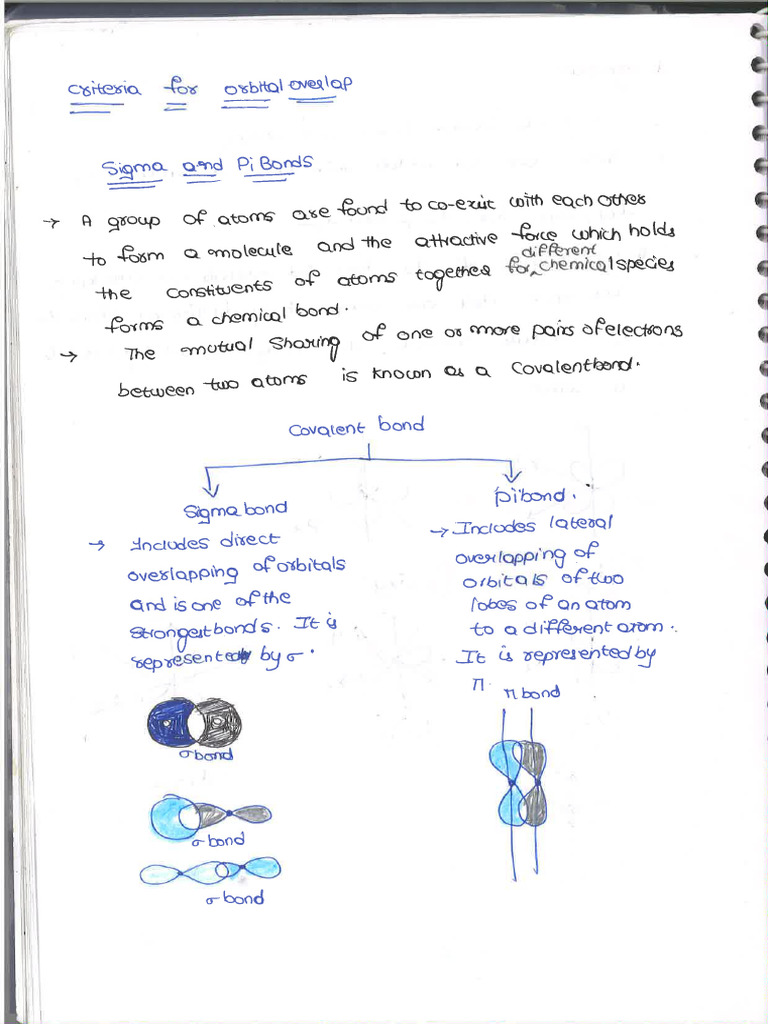 Criteria for orbital overlap
Sigma and Pi Bonds
→ A group of atoms are found to co-exist with each other
to form a molecule and the attractive force which holds
different
the constituents of atoms together for chemical species
forms a chemical bond.
→ The mutual sharing of one or more pairs of electrons
between two atoms is known as a Covalent bond.
Covalent bond
Sigma bond
→ Includes direct
overlapping of orbitals
and is one of the
strongest bonds. It is
represented by σ.
σ bond
σ bond
σ bond
pi bond.
→ Includes lateral
overlapping of
orbitals of two
lobes of an atom
to a different atom.
It is represented by
π.
π bond